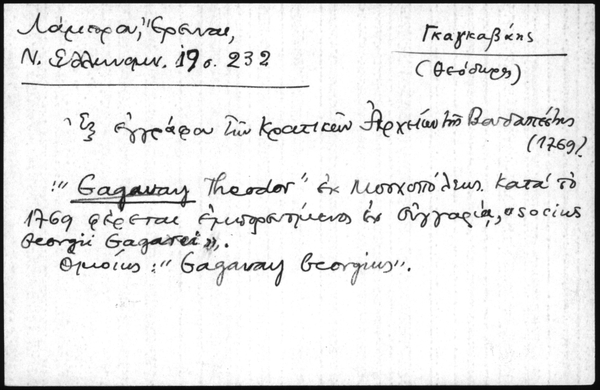 Λάμπρου, "Έρευναι,
Ν. Ελληνομν. 19 σ. 232
Γκαγκαβάης
(Θεόδωρος)
Ἐξ ἐγγράφου τῶν Κρατικῶν Ἀρχείων τῆς Βουδαπέστης
(1769).
:"Gagavay Theodor" ἐκ Μοσχοπόλεως. Κατὰ τὸ
1769 φέρεται ἐμπορευόμενος ἐν Οὑγγαρίᾳ, "socius
Georgii Gagavei".
Ὁμοίως: "Gagavay Georgius".